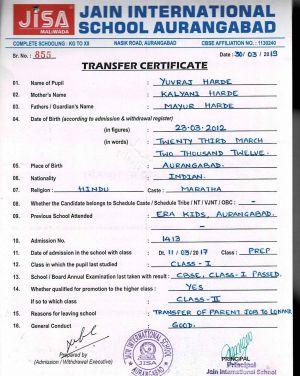 JISA
MALIWADA
JAIN INTERNATIONAL
SCHOOL AURANGABAD
COMPLETE SCHOOLING : KG TO XII NASIK ROAD, AURANGABAD CBSE AFFILIATION NO. : 1130240
Sr. No. : 855 Date : 30/03/2019
TRANSFER CERTIFICATE
01. Name of Pupil : YUVRAJ HARDE
02. Mother's Name : KALYANI HARDE
03. Fathers / Guardian's Name : MAYUR HARDE
04. Date of Birth (according to admission & withdrawal register)
(in figures) : 23-03-2012
(in words) : TWENTY THIRD MARCH
TWO THOUSAND TWELVE.
05. Place of Birth : AURANGABAD.
06. Nationality : INDIAN.
07. Religion : HINDU Caste : MARATHA
08. Whether the Candidate belongs to Schedule Caste / Schedule Tribe / NT / VJNT / OBC : -
09. Previous School Attended : ERA KIDS, AURANGABAD.
10. Admission No. : 1413
11. Date of admission in the school with class : Dt. 11/03/2017 Class : PREP
12. Class in which the pupil last studied : CLASS-I
13. School / Board Annual Examination last taken with result : CBSE, CLASS-I PASSED.
14. Whether qualified for promotion to the higher class : YES
If so to which class : CLASS-II
15. Reasons for leaving school : TRANSFER OF PARENT JOB TO
16. General Conduct : GOOD.
Prepared by
(Admission / Withdrawal Executive)
JAIN INTERNATIONAL SCHOOL
JISA
PRINCIPAL
Principal
Jain International School